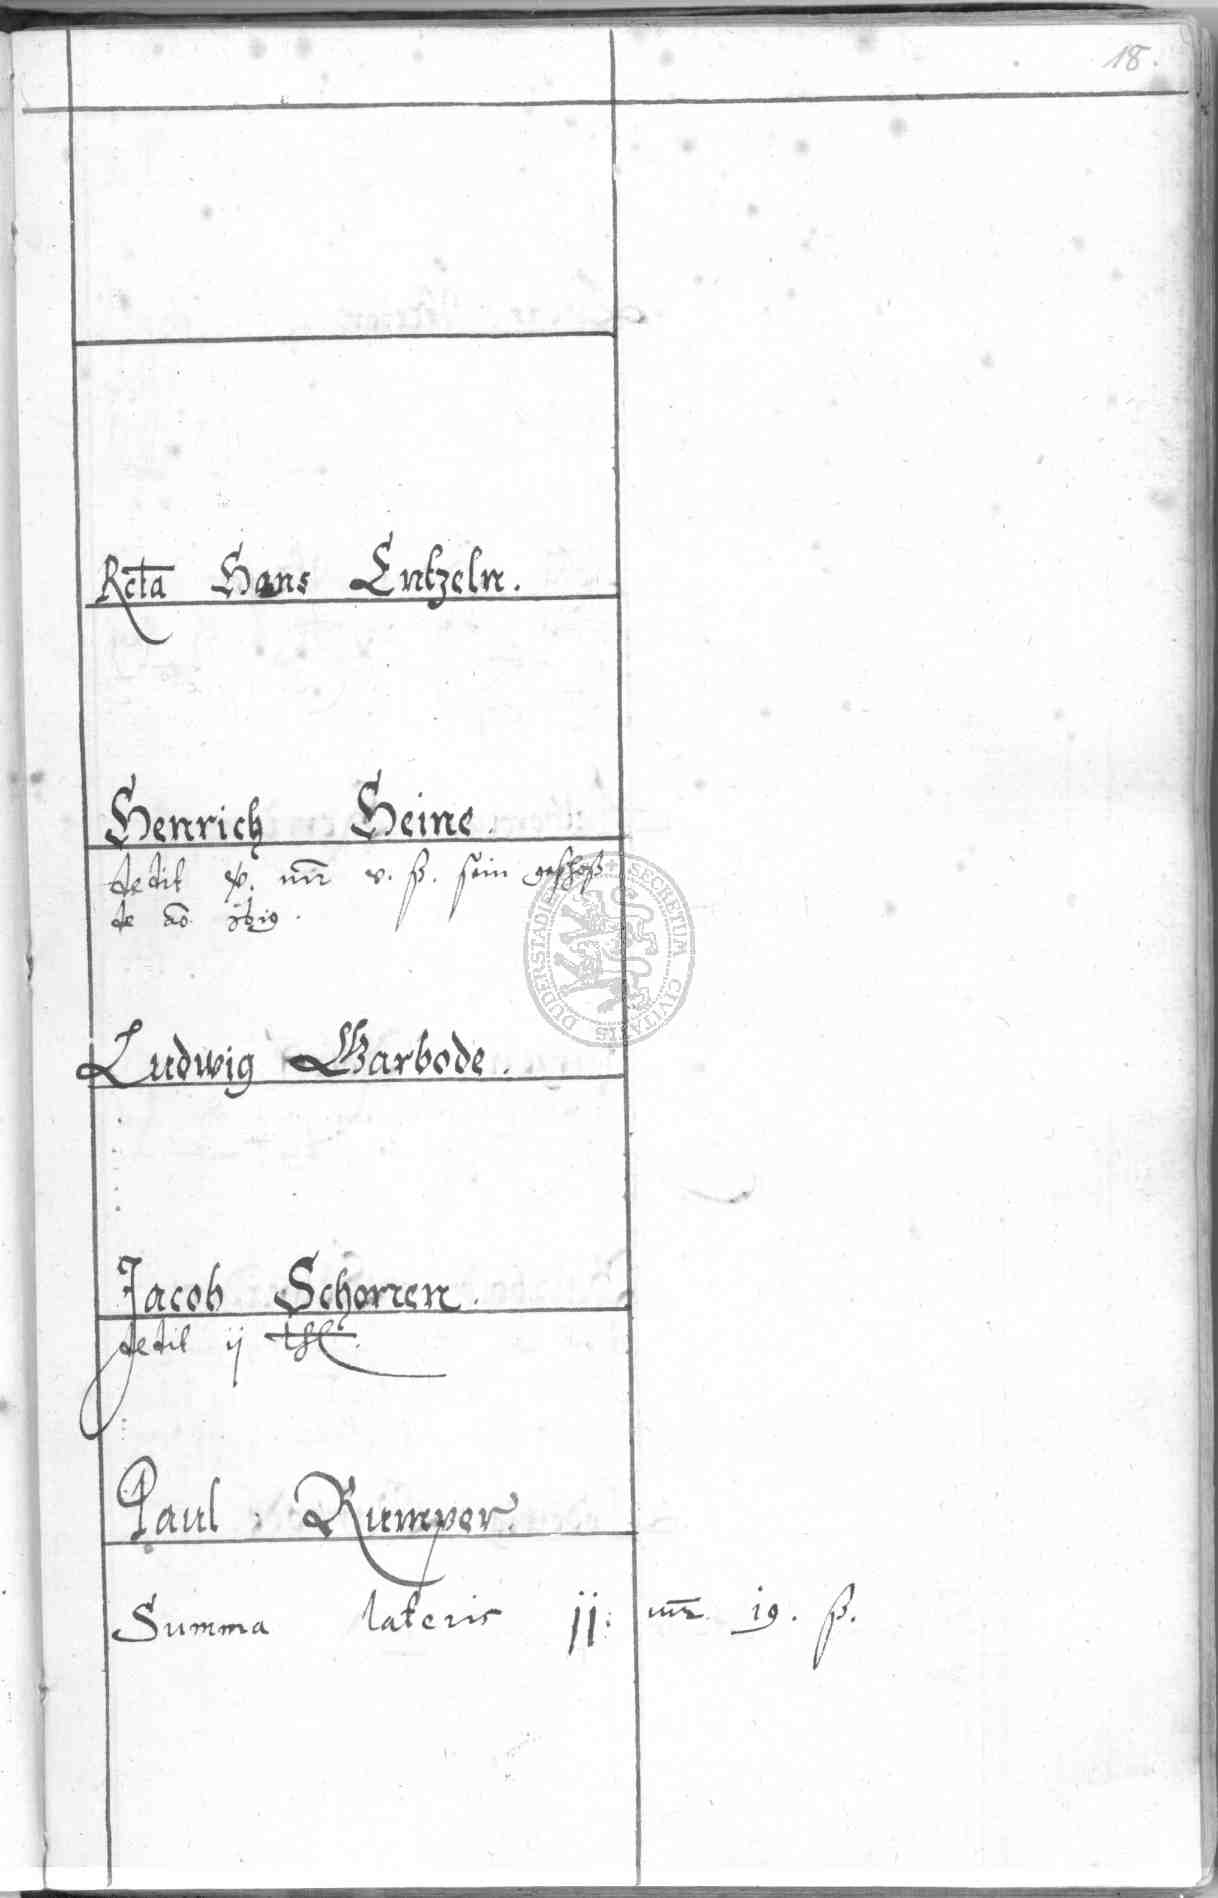 18.
Rcta Hans Entzeln.
Henrich Heine.
dedit mr v. ß. sein geschoß
de ao.
Ludwig Warbode.
Jacob Schorren.
dedit ij thl.
Paul Rumper.
Summa lateris jj: mr. 19. ß.
SECRETUM CIVITATIS DUDERSTADIE